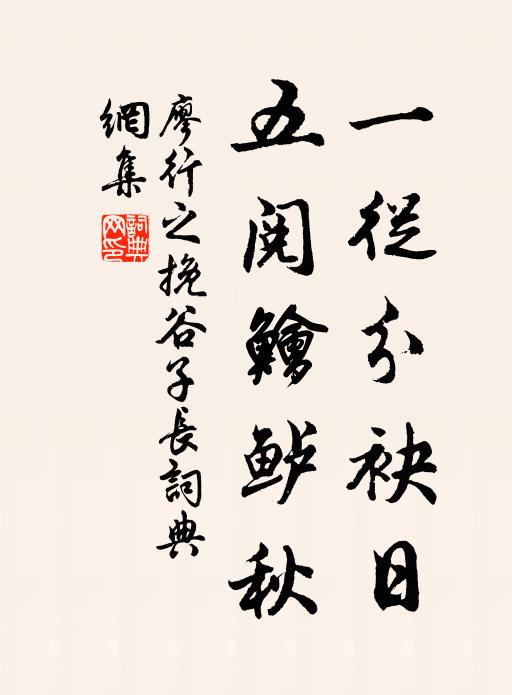 一從分袂日
五閱鱠鲈秋
廖行之挽谷子長詞典
網集
詞典
网印